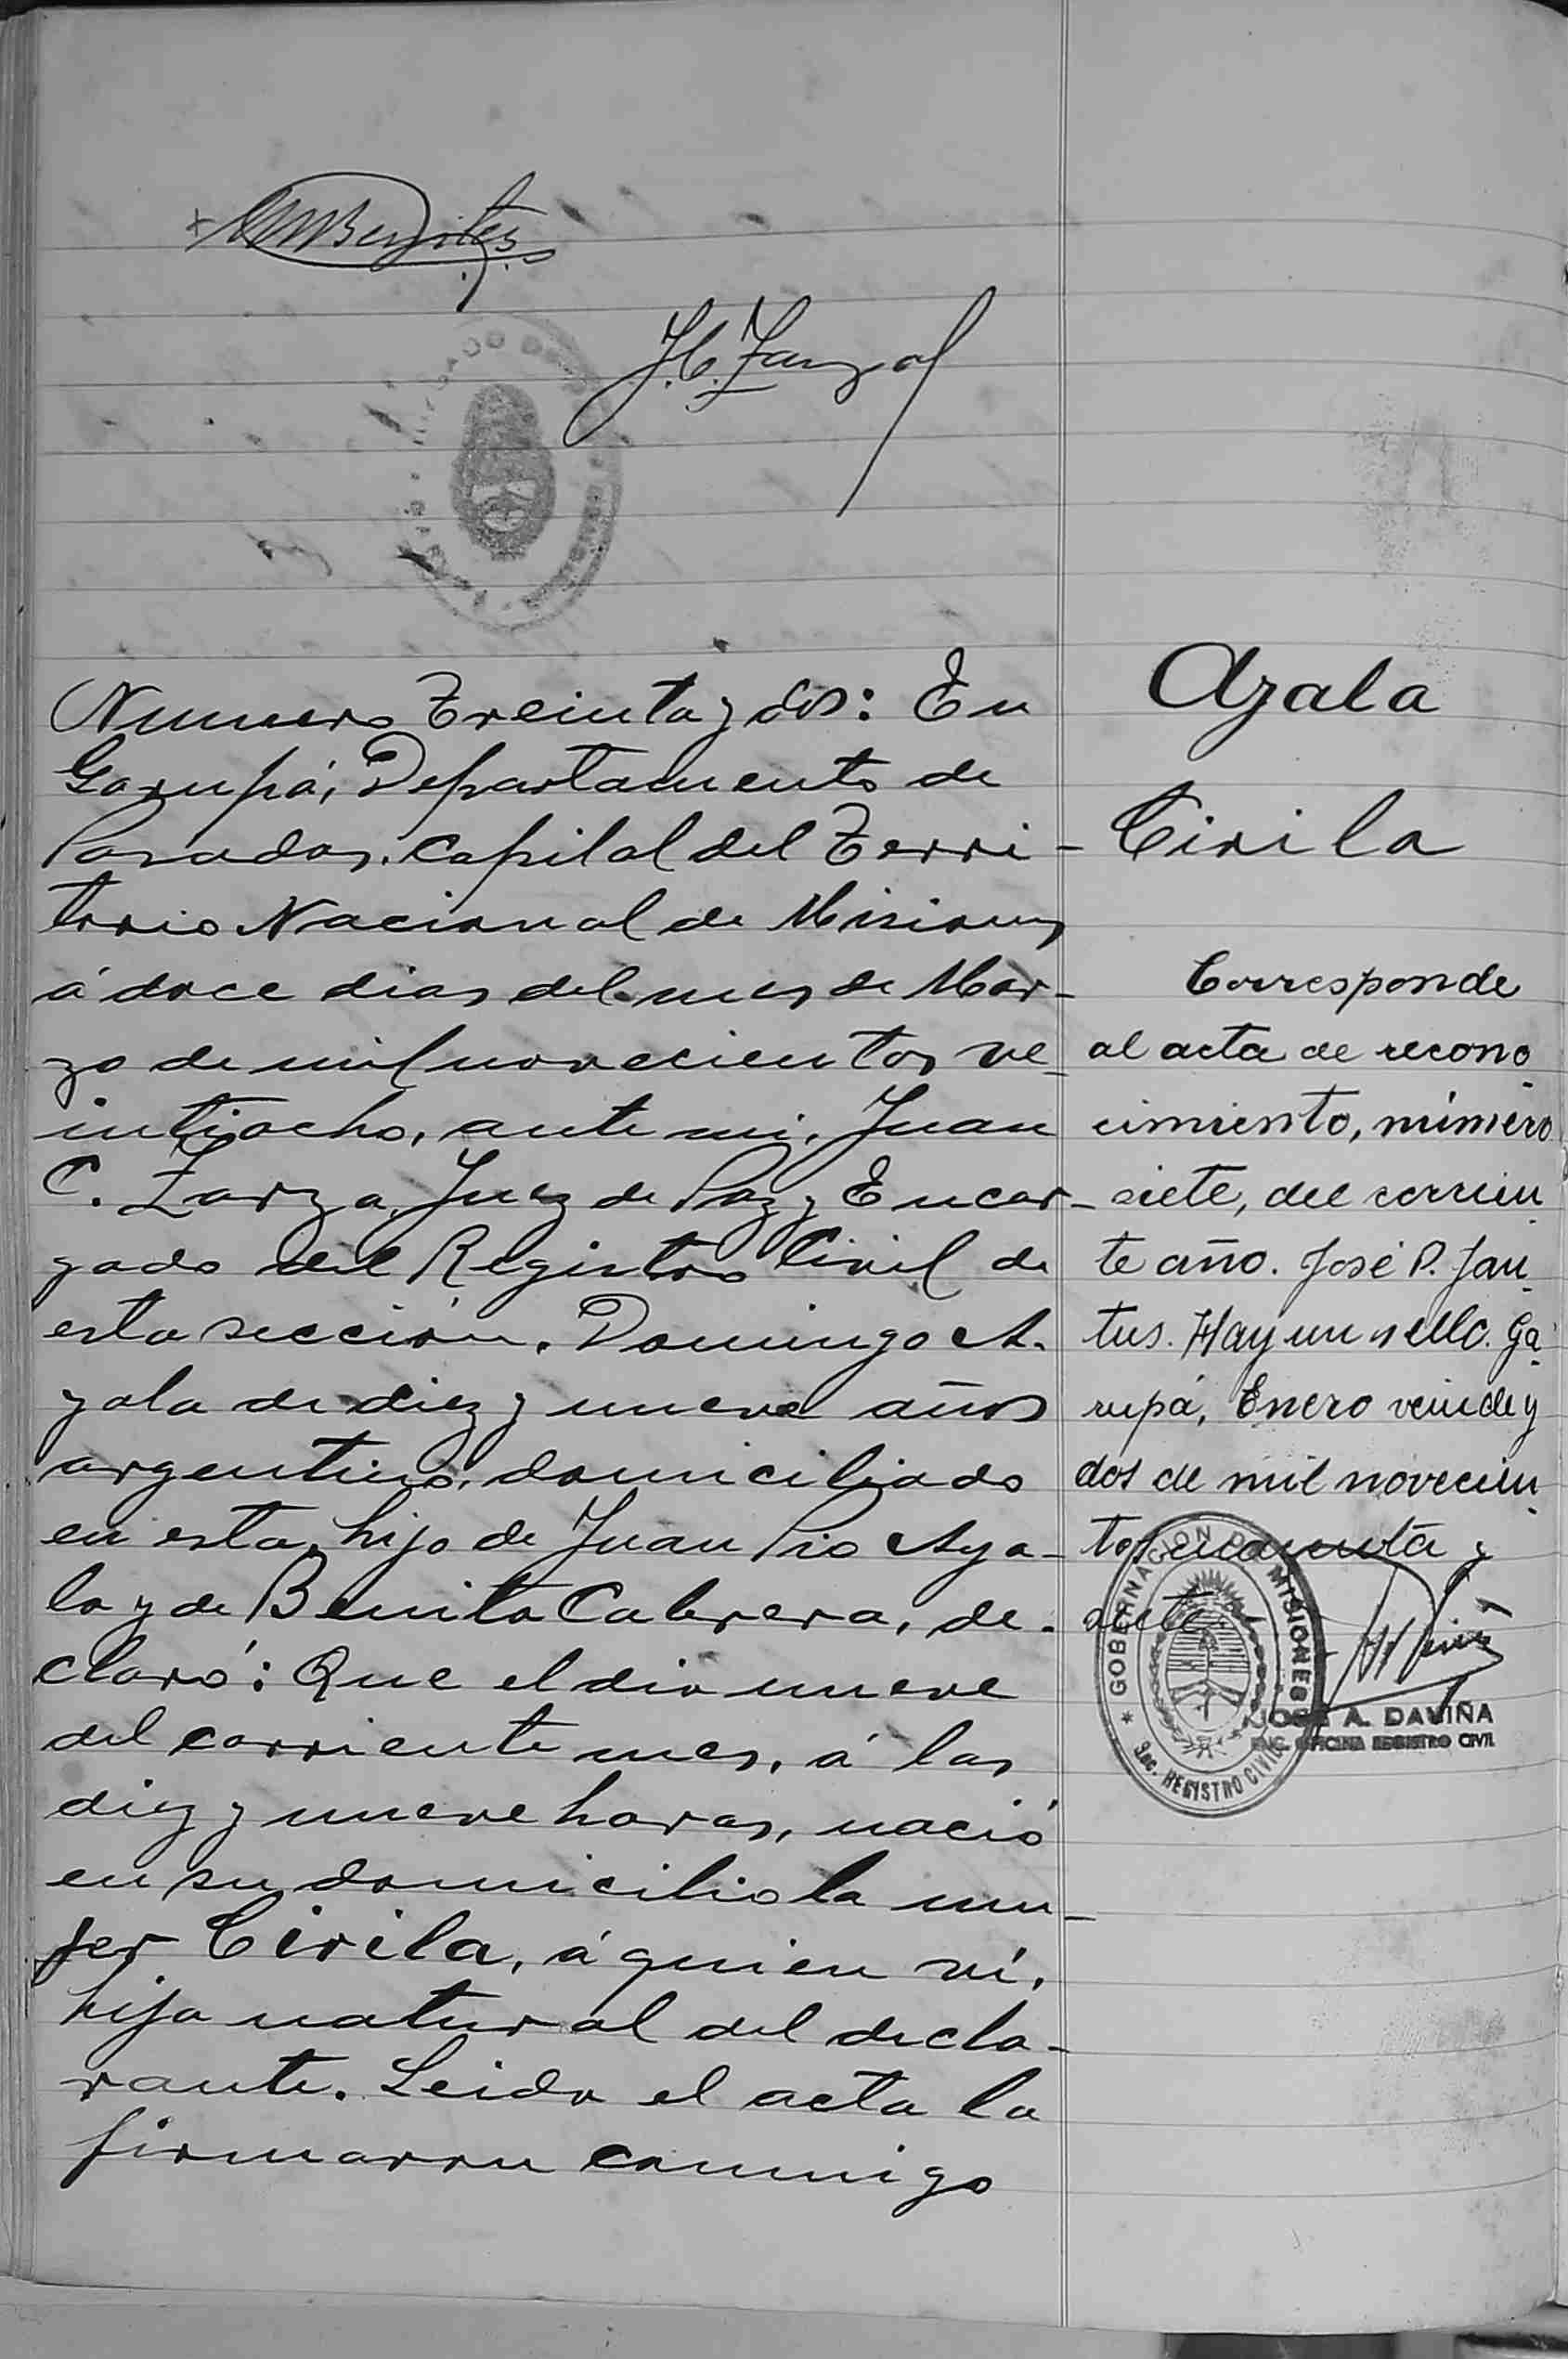 Benites
J.C. Zarza
Numero Treinta y dos: En
Garupá, Departamento de
Posadas. Capital del Terri-
torio Nacional de Misiones
á doce dias del mes de Mar-
zo de mil novecientos ve-
intiocho, ante mi, Juan
C. Zarza, Juez de Paz y Encar-
gado del Registro Civil de
esta sección. Domingo A-
yala de diez y nueve años
argentino, domiciliado
en esta, hijo de Juan Pio Aya-
la y de Benita Cabrera, de-
claró: Que el dia nueve
del corriente mes, á las
diez y nueve horas, nació
en su domicilio la mu-
jer Cirila, á quien ví,
hija natural del decla-
rante. Leida el acta la
firmaron conmigo
Ayala
Cirila
Corresponde
al acta de recono-
cimiento, número
siete, del corrien-
te año. José P. Jan-
tus. Hay un sello. Ga-
rupá, Enero veinte y
dos de mil novecien-
tos cuarenta y
siete
GOBERNACION DE MISIONES
REGISTRO CIVIL
JOSE A. DAVIÑA
ENC. OFICINA REGISTRO CIVIL